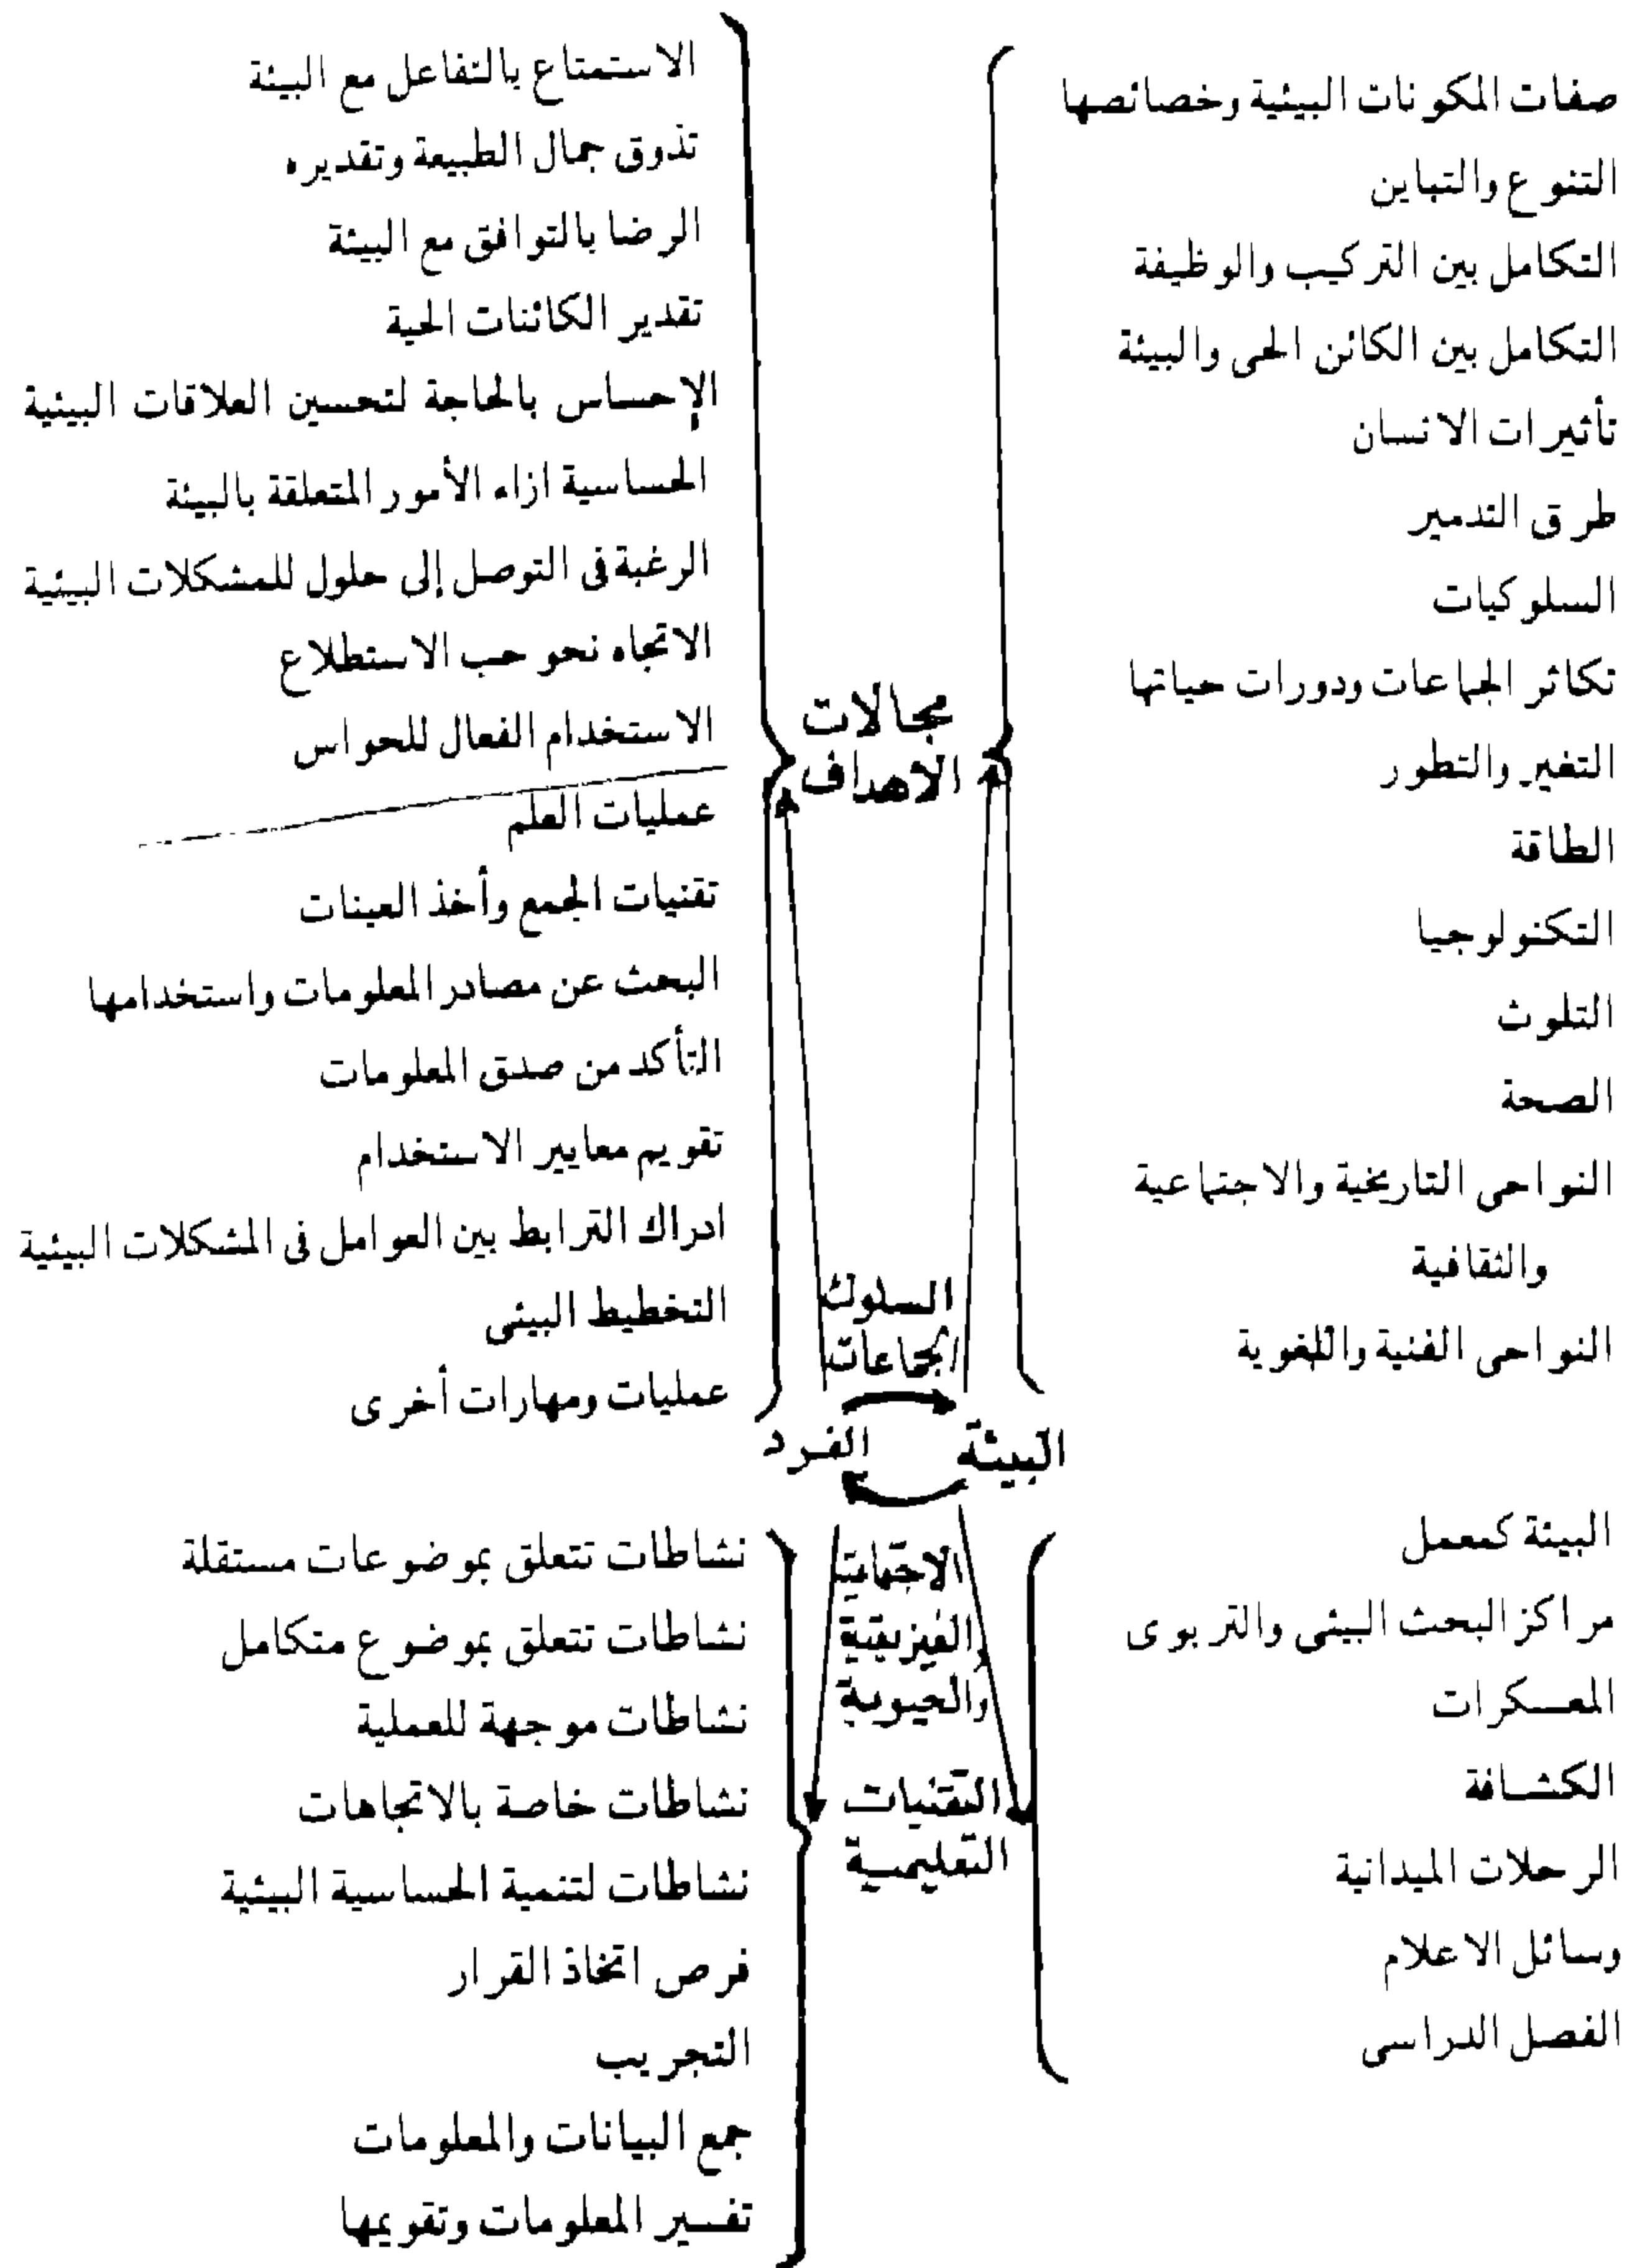 صفات المكونات البيئية وخصائصها
التنوع والتباين
التكامل بين التركيب والوظيفة
التكامل بين الكائن الحى والبيئة
تأثيرات الانسان
طرق التدمير
السلوكيات
تكاثر الجماعات ودورات حياتها
التغير والتطور
الطاقة
التكنولوجيا
التلوث
الصحة
النواحى التاريخية والاجتماعية
والثقافية
النواحى الفنية واللغوية
مجالات
الاهداف
الاستمتاع بالتفاعل مع البيئة
تذوق جمال الطبيعة وتقديره
الرضا بالتوافق مع البيئة
تقدير الكائنات الحية
الإحساس بالحاجة لتحسين العلاقات البيئية
الحساسية ازاء الأمور المتعلقة بالبيئة
الرغبة فى التوصل إلى حلول للمشكلات البيئية
الاتجاه نحو حب الاستطلاع
الاستخدام الفعال للحواس
عمليات العلم
تقنيات الجمع وأخذ العينات
البحث عن مصادر المعلومات واستخدامها
التأكد من صدق المعلومات
تقويم معايير الاستخدام
ادراك الترابط بين العوامل فى المشكلات البيئية
التخطيط البيئى
عمليات ومهارات أخرى
السلوك
الجماعات
البيئة
الفرد
البيئة كمعمل
مراكز البحث البيئى والتربوى
المعسكرات
الكشافة
الرحلات الميدانية
وسائل الاعلام
الفصل الدراسى
الاجتماعية
والفيزيقية
والحيوية
التقنيات
التعليمية
نشاطات تتعلق بموضوعات مستقلة
نشاطات تتعلق بموضوع متكامل
نشاطات موجهة للعملية
نشاطات خاصة بالاتجاهات
نشاطات لتنمية الحساسية البيئية
فرص اتخاذ القرار
التجريب
جمع البيانات والمعلومات
تفسير المعلومات وتقويمها